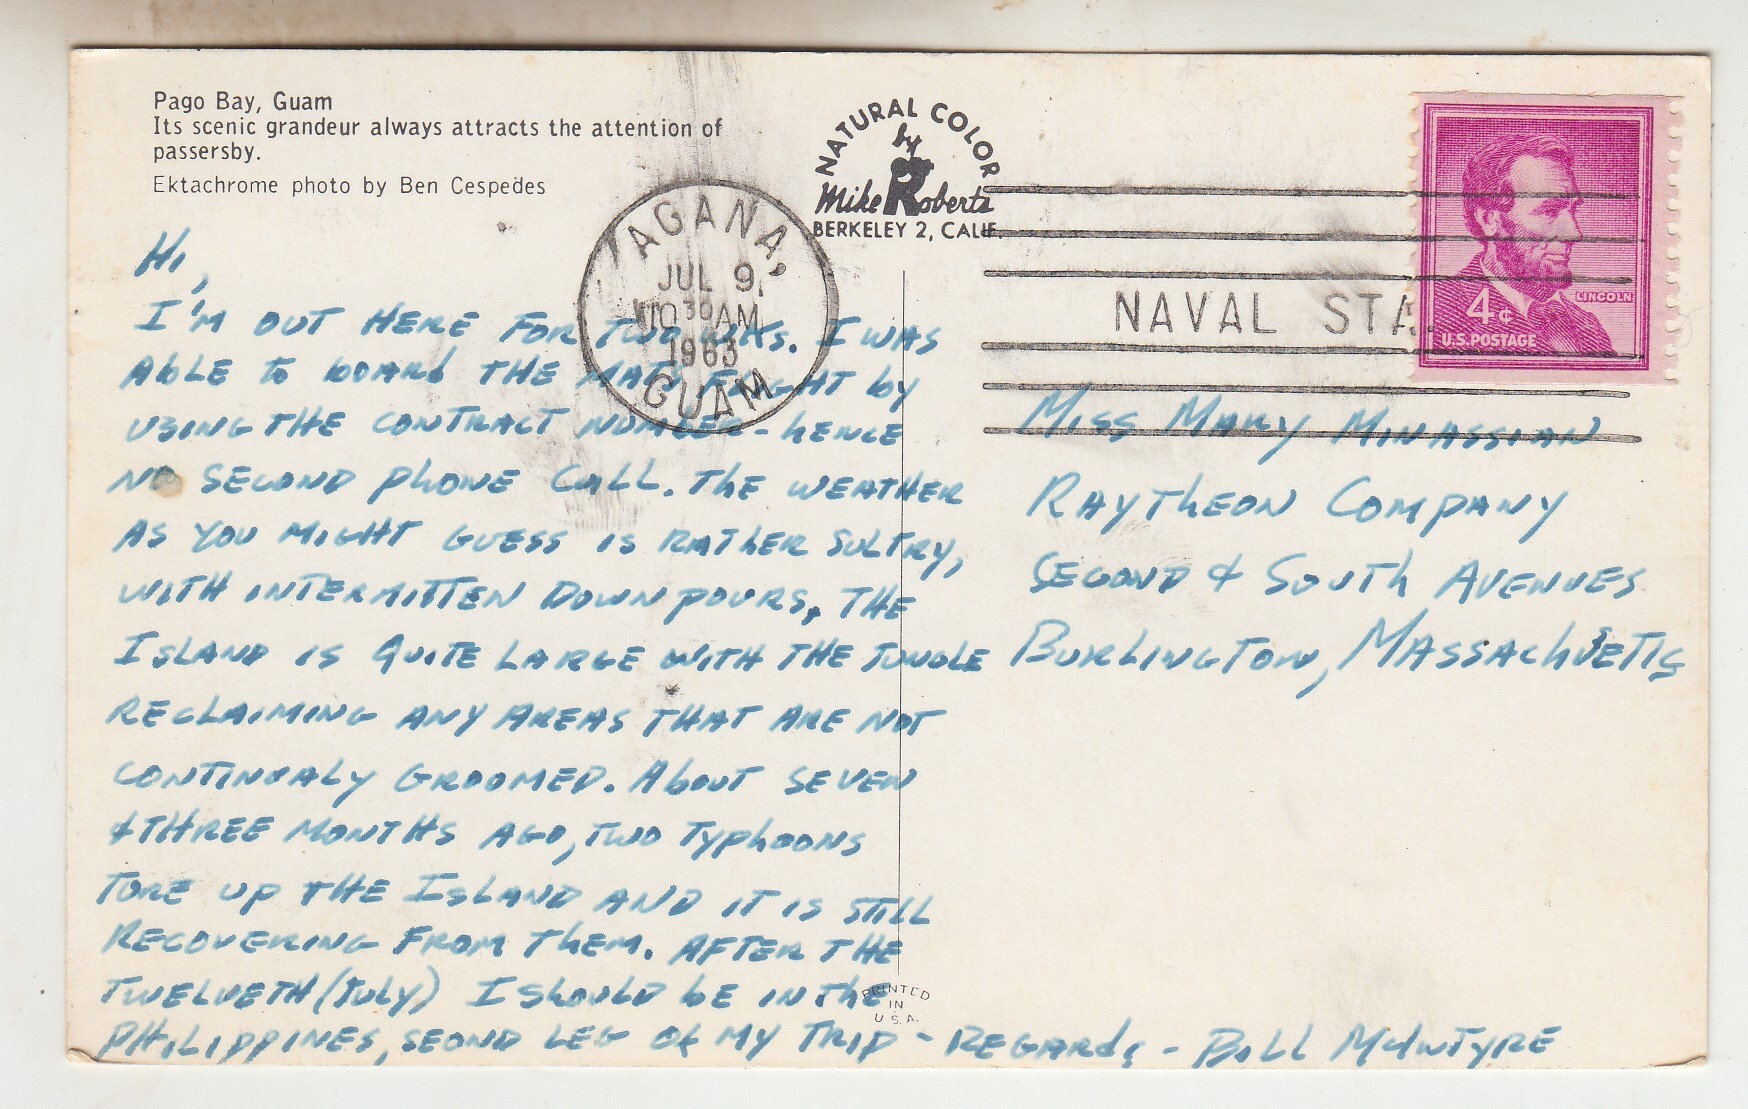 Pago Bay, Guam
Its scenic grandeur always attracts the attention of
passersby.
Ektachrome photo by Ben Cespedes
NATURAL COLOR
by
Mike Roberts
BERKELEY 2, CALIF.
AGANA,
JUL 9,
10 30 AM
1963
GUAM
NAVAL STA.
4¢
LINCOLN
U.S. POSTAGE
HI,
I'M OUT HERE FOR TWO WKS. I WAS
ABLE TO BOARD THE MATS FLIGHT BY
USING THE CONTRACT NUMBER - HENCE
NO SECOND PHONE CALL. THE WEATHER
AS YOU MIGHT GUESS IS RATHER SULTRY,
WITH INTERMITTEN DOWNPOURS, THE
ISLAND IS QUITE LARGE WITH THE JUNGLE
RECLAIMING ANY AREAS THAT ARE NOT
CONTINUALY GROOMED. ABOUT SEVEN
& THREE MONTHS AGO, TWO TYPHOONS
TORE UP THE ISLAND AND IT IS STILL
RECOVERING FROM THEM. AFTER THE
TWELVETH (JULY) I SHOULD BE IN THE
PHILIPPINES, SEOND LEG OF MY TRIP - REGARDS - BILL MCINTYRE
MISS MARY MINASSIAN
RAYTHEON COMPANY
SECOND & SOUTH AVENUES
BURLINGTON, MASSACHUSETTS
PRINTED
IN
U.S.A.